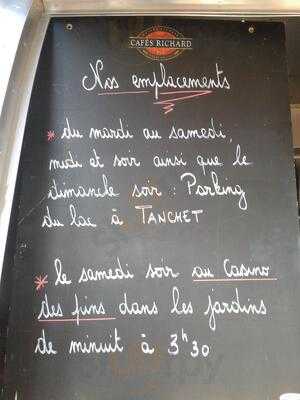 CAFÉS RICHARD
Nos emplacements
* du mardi au samedi,
midi et soir ainsi que le
dimanche soir : Parking
du lac à TANCHET
* le samedi soir au Casino
des pins dans les jardins
de minuit à 3h30